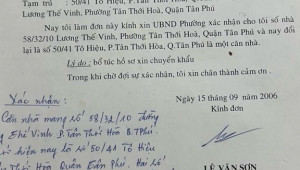 Tạm trú : 50/41 Tô Hiệu, P.Tân Thới Hoà, Q.Tân Phú
Nay tôi làm đơn này kính xin UBND Phường xác nhận cho tôi số nhà
58/32/10 Lương Thế Vinh, Phường Tân Thới Hoà, Quận Tân Phú và nay đổi
lại là số 50/41 Tô Hiệu, P.Tân Thới Hoà, Q.Tân Phú là một căn nhà.
Lý do : bổ túc hồ sơ xin chuyển khẩu
Trong khi chờ đợi sự xác nhận, tôi xin chân thành cảm ơn .
Xác nhận: Ngày 15 tháng 09 năm 2006
Căn nhà mang số 58/32/10 Lương Kính đơn
Thế Vinh P. Tân Thới Hòa Q. T Phú.
hiện nay là số 50/41 Tô Hiệu
Thới Hòa, Quận Tân Phú, Hai số
LÊ VĂN SƠN